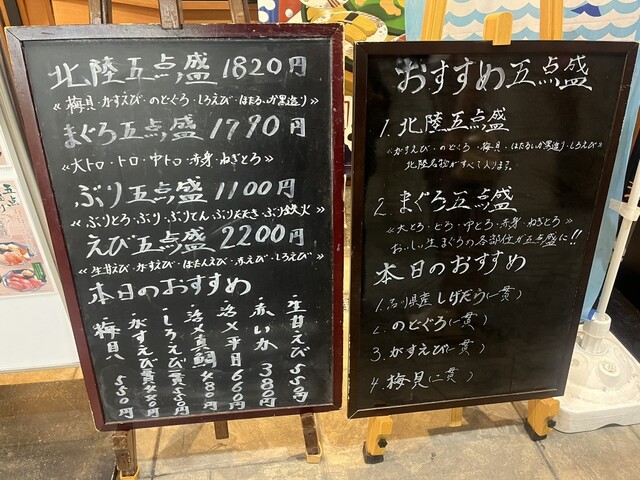 北陸五点盛 1820円
《梅貝・がすえび・のどぐろ・しろえび・ほたるいか黒造り》
まぐろ五点盛 1790円
《大トロ・トロ・中トロ・赤身・ねぎとろ》
ぶり五点盛 1100円
《ぶりとろ・ぶり・ぶりてん・ぶりたたき・ぶり鉄火》
えび五点盛 2200円
《生甘えび・がすえび・ぼたんえび・すえび・しろえび》
本日のおすすめ
・生甘えび 550円
・赤いか 380円
・活〆平目 660円
・活〆真鯛 480円
・しろえび 一貫 550円
・がすえび 一貫 480円
・梅貝 550円
おすすめ五点盛
1. 北陸五点盛
《がすえび・のどぐろ・梅貝・ほたるいか黒造り・しろえび》
北陸名物がすべて入ります。
2. まぐろ五点盛
《大とろ・とろ・中とろ・赤身・ねぎとろ》
おいしい生まぐろの各部位が五点盛に!!
本日のおすすめ
1. 石川県産 しげだろ(一貫)
2. のどぐろ(一貫)
3. がすえび(一貫)
4. 梅貝(二貫)